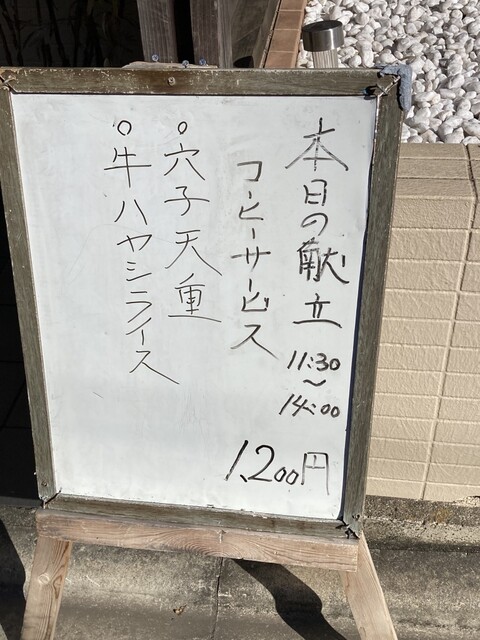 本日の献立
11:30
〜
14:00
コーヒーサービス
○穴子天重
○牛ハヤシライス
1,200円